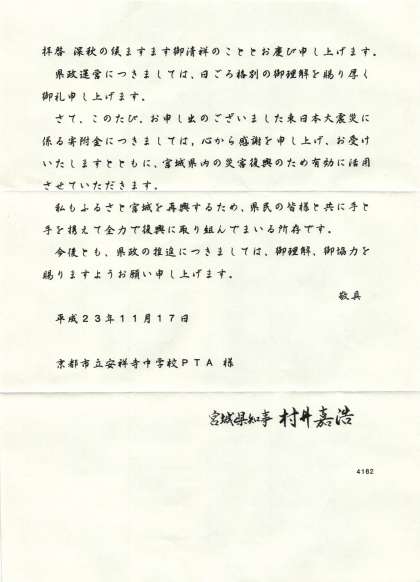 拝啓 深秋の候ますます御清祥のこととお慶び申し上げます。
県政運営につきましては、日ごろ格別の御理解を賜り厚く
御礼申し上げます。
さて、このたび、お申し出のございました東日本大震災に
係る寄附金につきましては、心から感謝を申し上げ、お受け
いたしますとともに、宮城県内の災害復興のため有効に活用
させていただきます。
私もふるさと宮城を再興するため、県民の皆様と共に手と
手を携えて全力で復興に取り組んでまいる所存です。
今後とも、県政の推進につきましては、御理解、御協力を
賜りますようお願い申し上げます。
敬具
平成23年11月17日
京都市立安祥寺中学校PTA 様
宮城県知事 村井嘉浩
4162